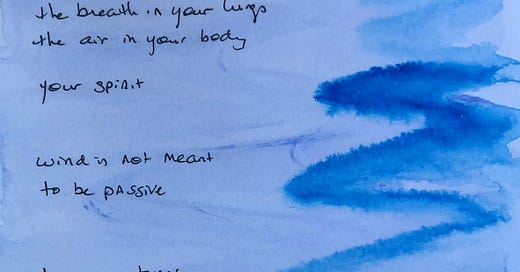 the breath in your lungs
the air in your body
your spirit
wind is not meant
to be passive